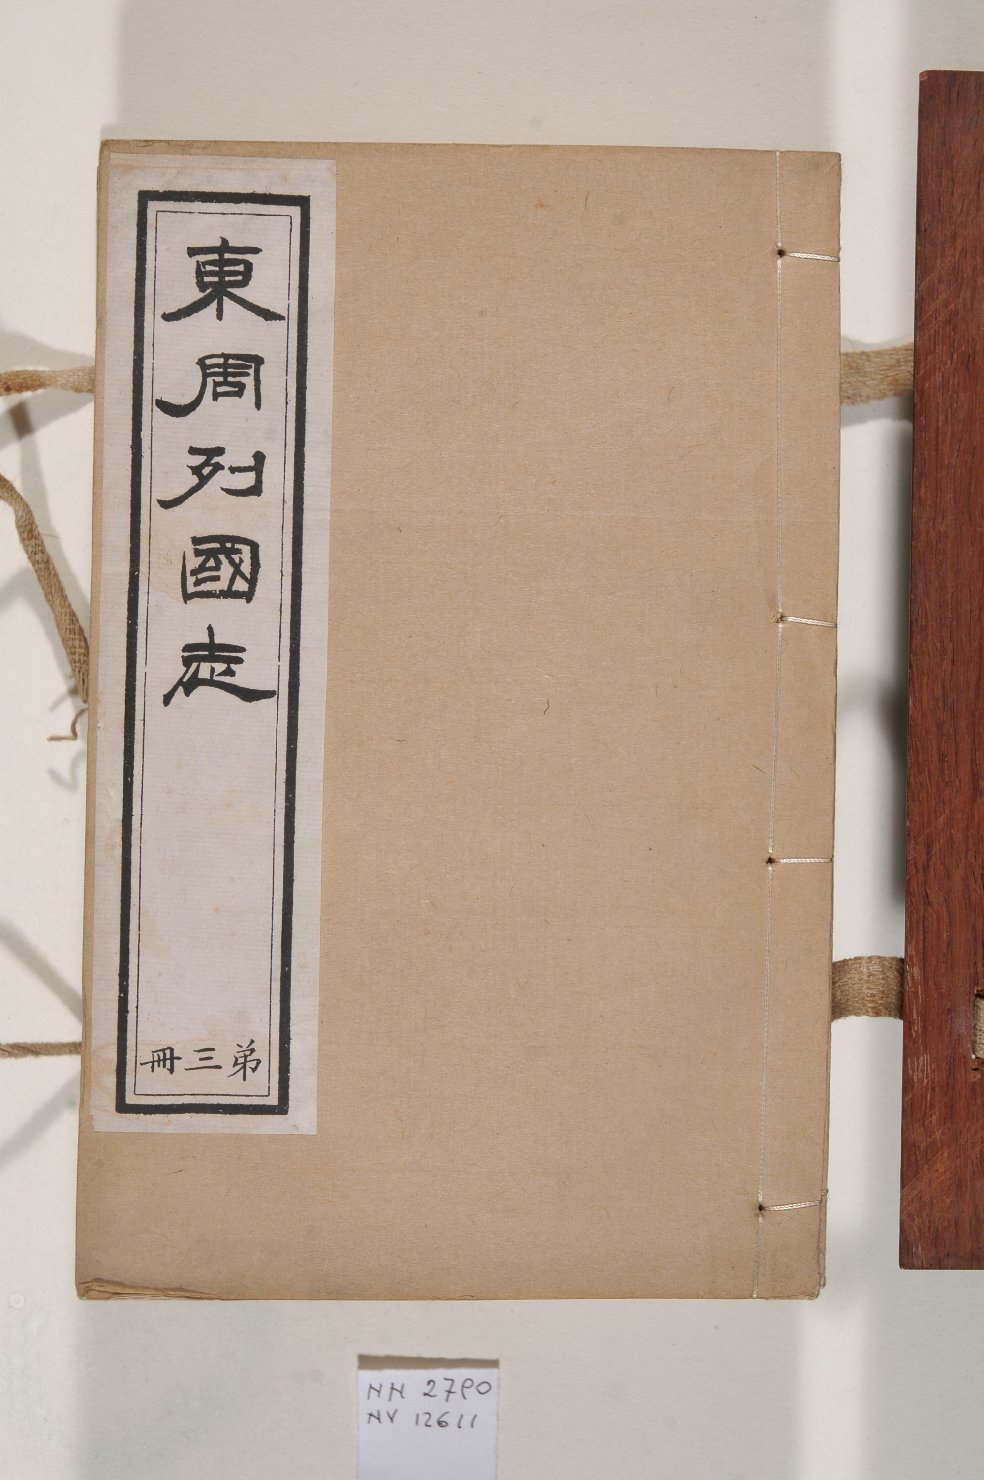 東周列國志
弟三冊
NN 2790
NV 12611